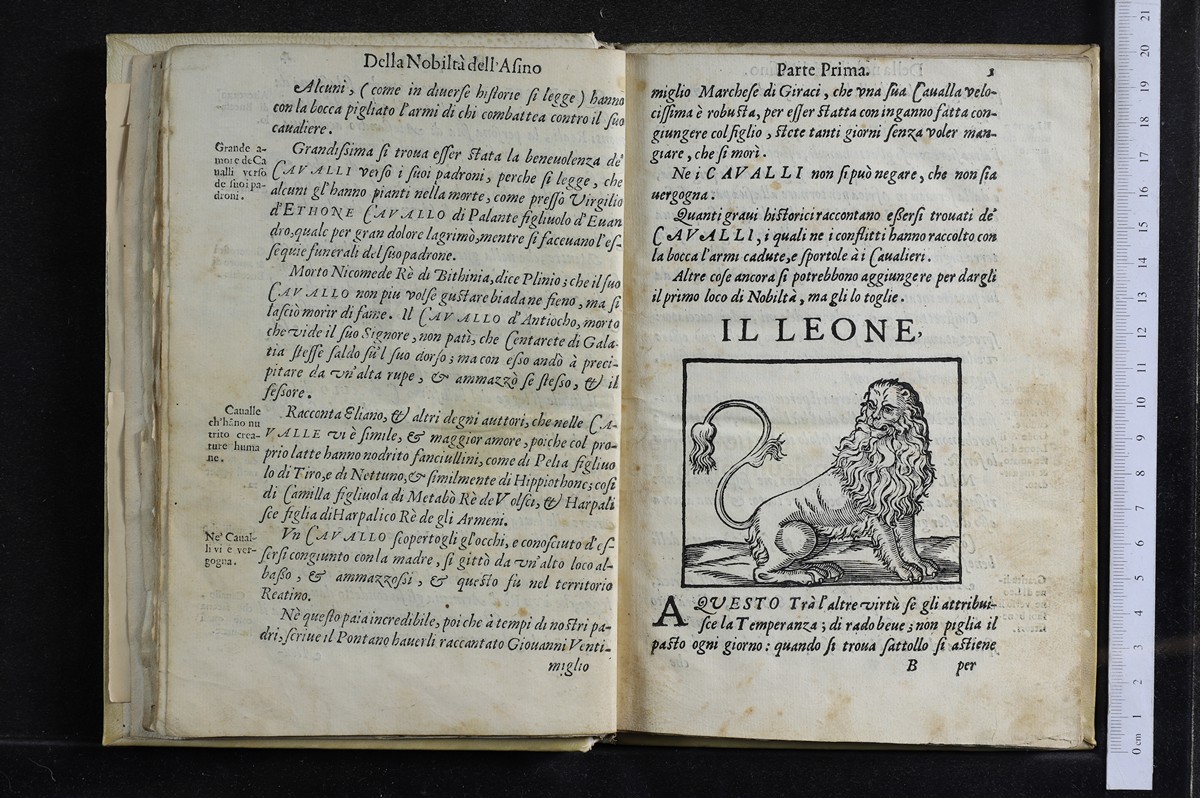 Della Nobiltà dell'Asino
Alcuni, (come in diuerse historie si legge) hanno
con la bocca pigliato l'armi di chi combattea contro il suo
caualiere.
Grande a-
more de Ca
ualli verso
de suoi pa-
droni.
Grandissima si troua esser stata la beneuolenza de'
CAVALLI verso i suoi padroni, perche si legge, che
alcuni gl'hanno pianti nella morte, come presso Virgilio
d'ETHONE CAVALLO di Palante figliuolo d'Euan
dro, quale per gran dolore lagrimò, mentre si faceuano l'es-
sequie funerali del suo padrone.
Morto Nicomede Rè di Bithinia, dice Plinio; che il suo
CAVALLO non piu volse gustare biada ne fieno, ma si
lasciò morir di fame. Il CAVALLO d'Antiocho, morto
che vide il suo Signore, non patì, che Centarete di Gala-
tia stesse saldo sù'l suo dorso; ma con esso andò à preci-
pitare da vn'alta rupe, & ammazzò se stesso, & il
sessore.
Caualle
ch'hãno nu
trito crea-
ture huma
ne.
Racconta Eliano, & altri degni auttori, che nelle CA-
VALLE vi è simile, & maggior amore, poiche col pro-
prio latte hanno nodrito fanciullini, come di Pelia figliuo
lo di Tiro, e di Nettuno, & similmente di Hippiothone; così
di Camilla figliuola di Metabò Rè de Volsci, & Harpali
sce figlia di Harpalico Rè de gli Armeni.
Ne' Caual-
li vi è ver-
gogna.
Vn CAVALLO scopertogli gl'occhi, e conosciuto d'es-
sersi congiunto con la madre, si gittò da vn'alto loco al-
basso, & ammazzossi, & questo fù nel territorio
Reatino.
Nè questo paia incredibile, poi che à tempi di nostri pa-
dri, scriue il Pontano hauerli raccantato Giouanni Venti-
miglio
Parte Prima. 5
miglio Marchese di Giraci, che vna sua Caualla velo-
cissima è robusta, per esser statta con inganno fatta con-
giungere col figlio, stete tanti giorni senza voler man-
giare, che si morì.
Ne i CAVALLI non si può negare, che non sia
uergogna.
Quanti graui historici raccontano essersi trouati de'
CAVALLI, i quali ne i conflitti hanno raccolto con
la bocca l'armi cadute, e sportole à i Caualieri.
Altre cose ancora si potrebbono aggiungere per dargli
il primo loco di Nobiltà, ma gli lo toglie.
IL LEONE,
A QVESTO Trà l'altre virtù se gli attribui-
sce la Temperanza; di rado beue; non piglia il
pasto ogni giorno: quando si troua sattollo si astiene
B per